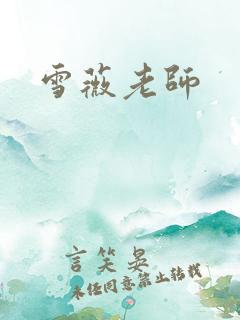 雪薇老師
言笑晏
未经同意禁止转载